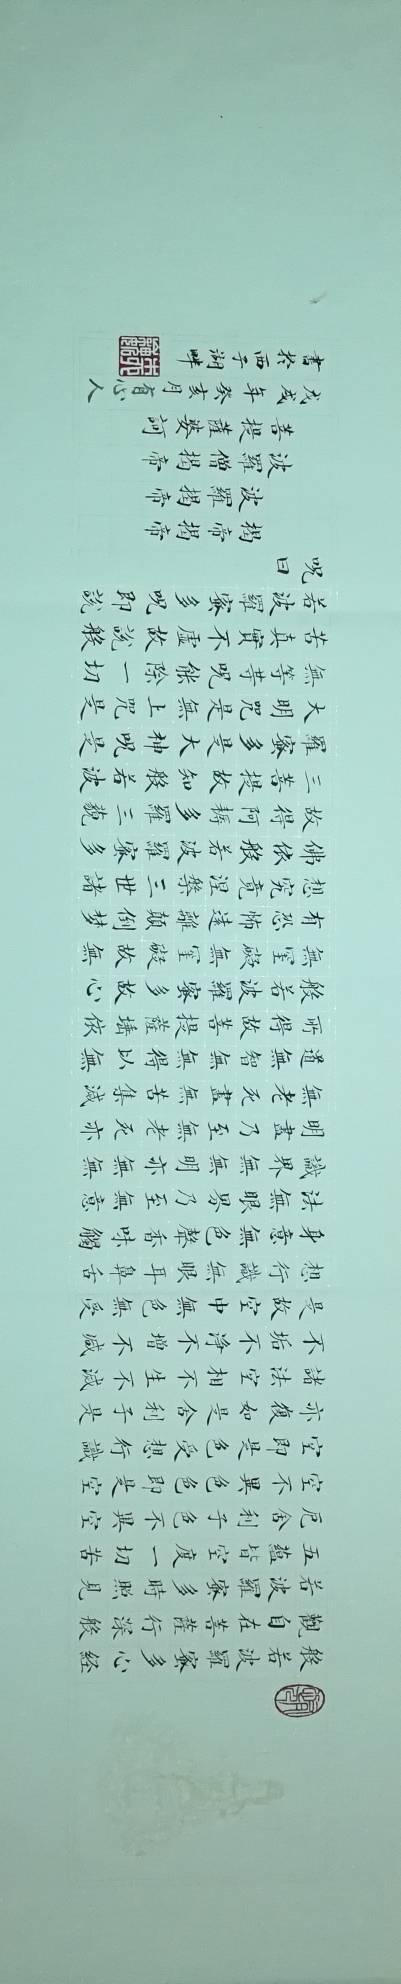 般若波羅蜜多心経
觀自在菩薩行深般
若波羅蜜多時照見
五蘊皆空度一切苦
厄舍利子色不異空
空不異色色即是空
空即是色受想行識
亦復如是舍利子是
諸法空相不生不滅
不垢不淨不增不減
是故空中無色無受
想行識無眼耳鼻舌
身意無色聲香味觸
法無眼界乃至無意
識界無無明亦無無
明盡乃至無老死亦
無老死盡無苦集滅
道無智亦無得以無
所得故菩提薩埵依
般若波羅蜜多故心
無罣礙無罣礙故無
有恐怖遠離顛倒梦
想究竟涅槃三世諸
佛依般若波羅蜜多
故得阿耨多羅三藐
三菩提故知般若波
羅蜜多是大神呪是
大明呪是無上呪是
無等等呪能除一切
苦真實不虛故説般
若波羅蜜多呪即説
呪曰
揭帝揭帝
波羅揭帝
波羅僧揭帝
菩提薩婆訶
戊戌年癸亥月有心人
書於西子湖畔